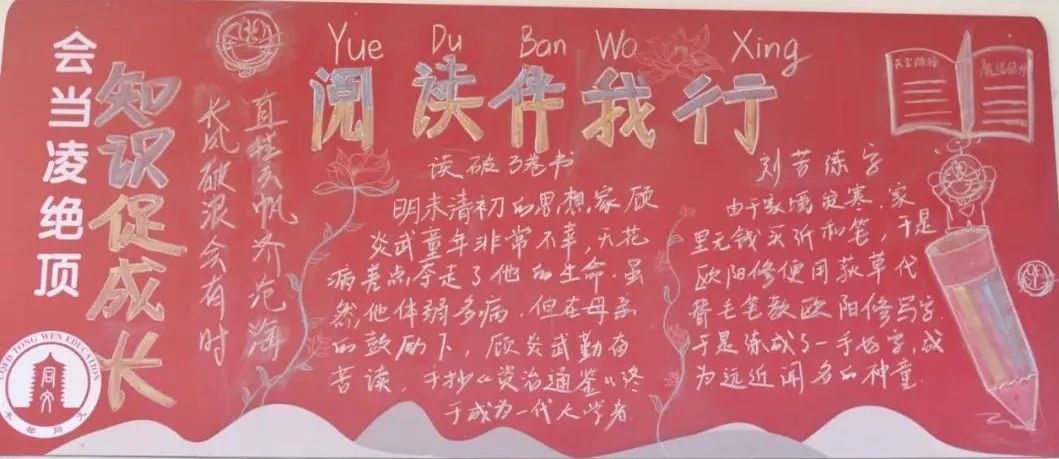 会当凌绝顶
知识促成长
长风破浪会有时
直挂云帆济沧海
Yue Du Ban Wo Xing
阅读伴我行
读破万卷书
明末清初的思想家顾
炎武童年非常不幸,天花
病差点夺走了他的生命.虽
然他体弱多病,但在母亲
的鼓励下,顾炎武勤奋
苦读,手抄《资治通鉴》终
于成为一代大学者.
刻苦练字
由于家境贫寒,家
里无钱买纸和笔,于是
欧阳修便用荻草代
替毛笔教欧阳修写字
于是练成了一手好字,成
为远近闻名的神童.
TONG WEN EDUCATION
同文